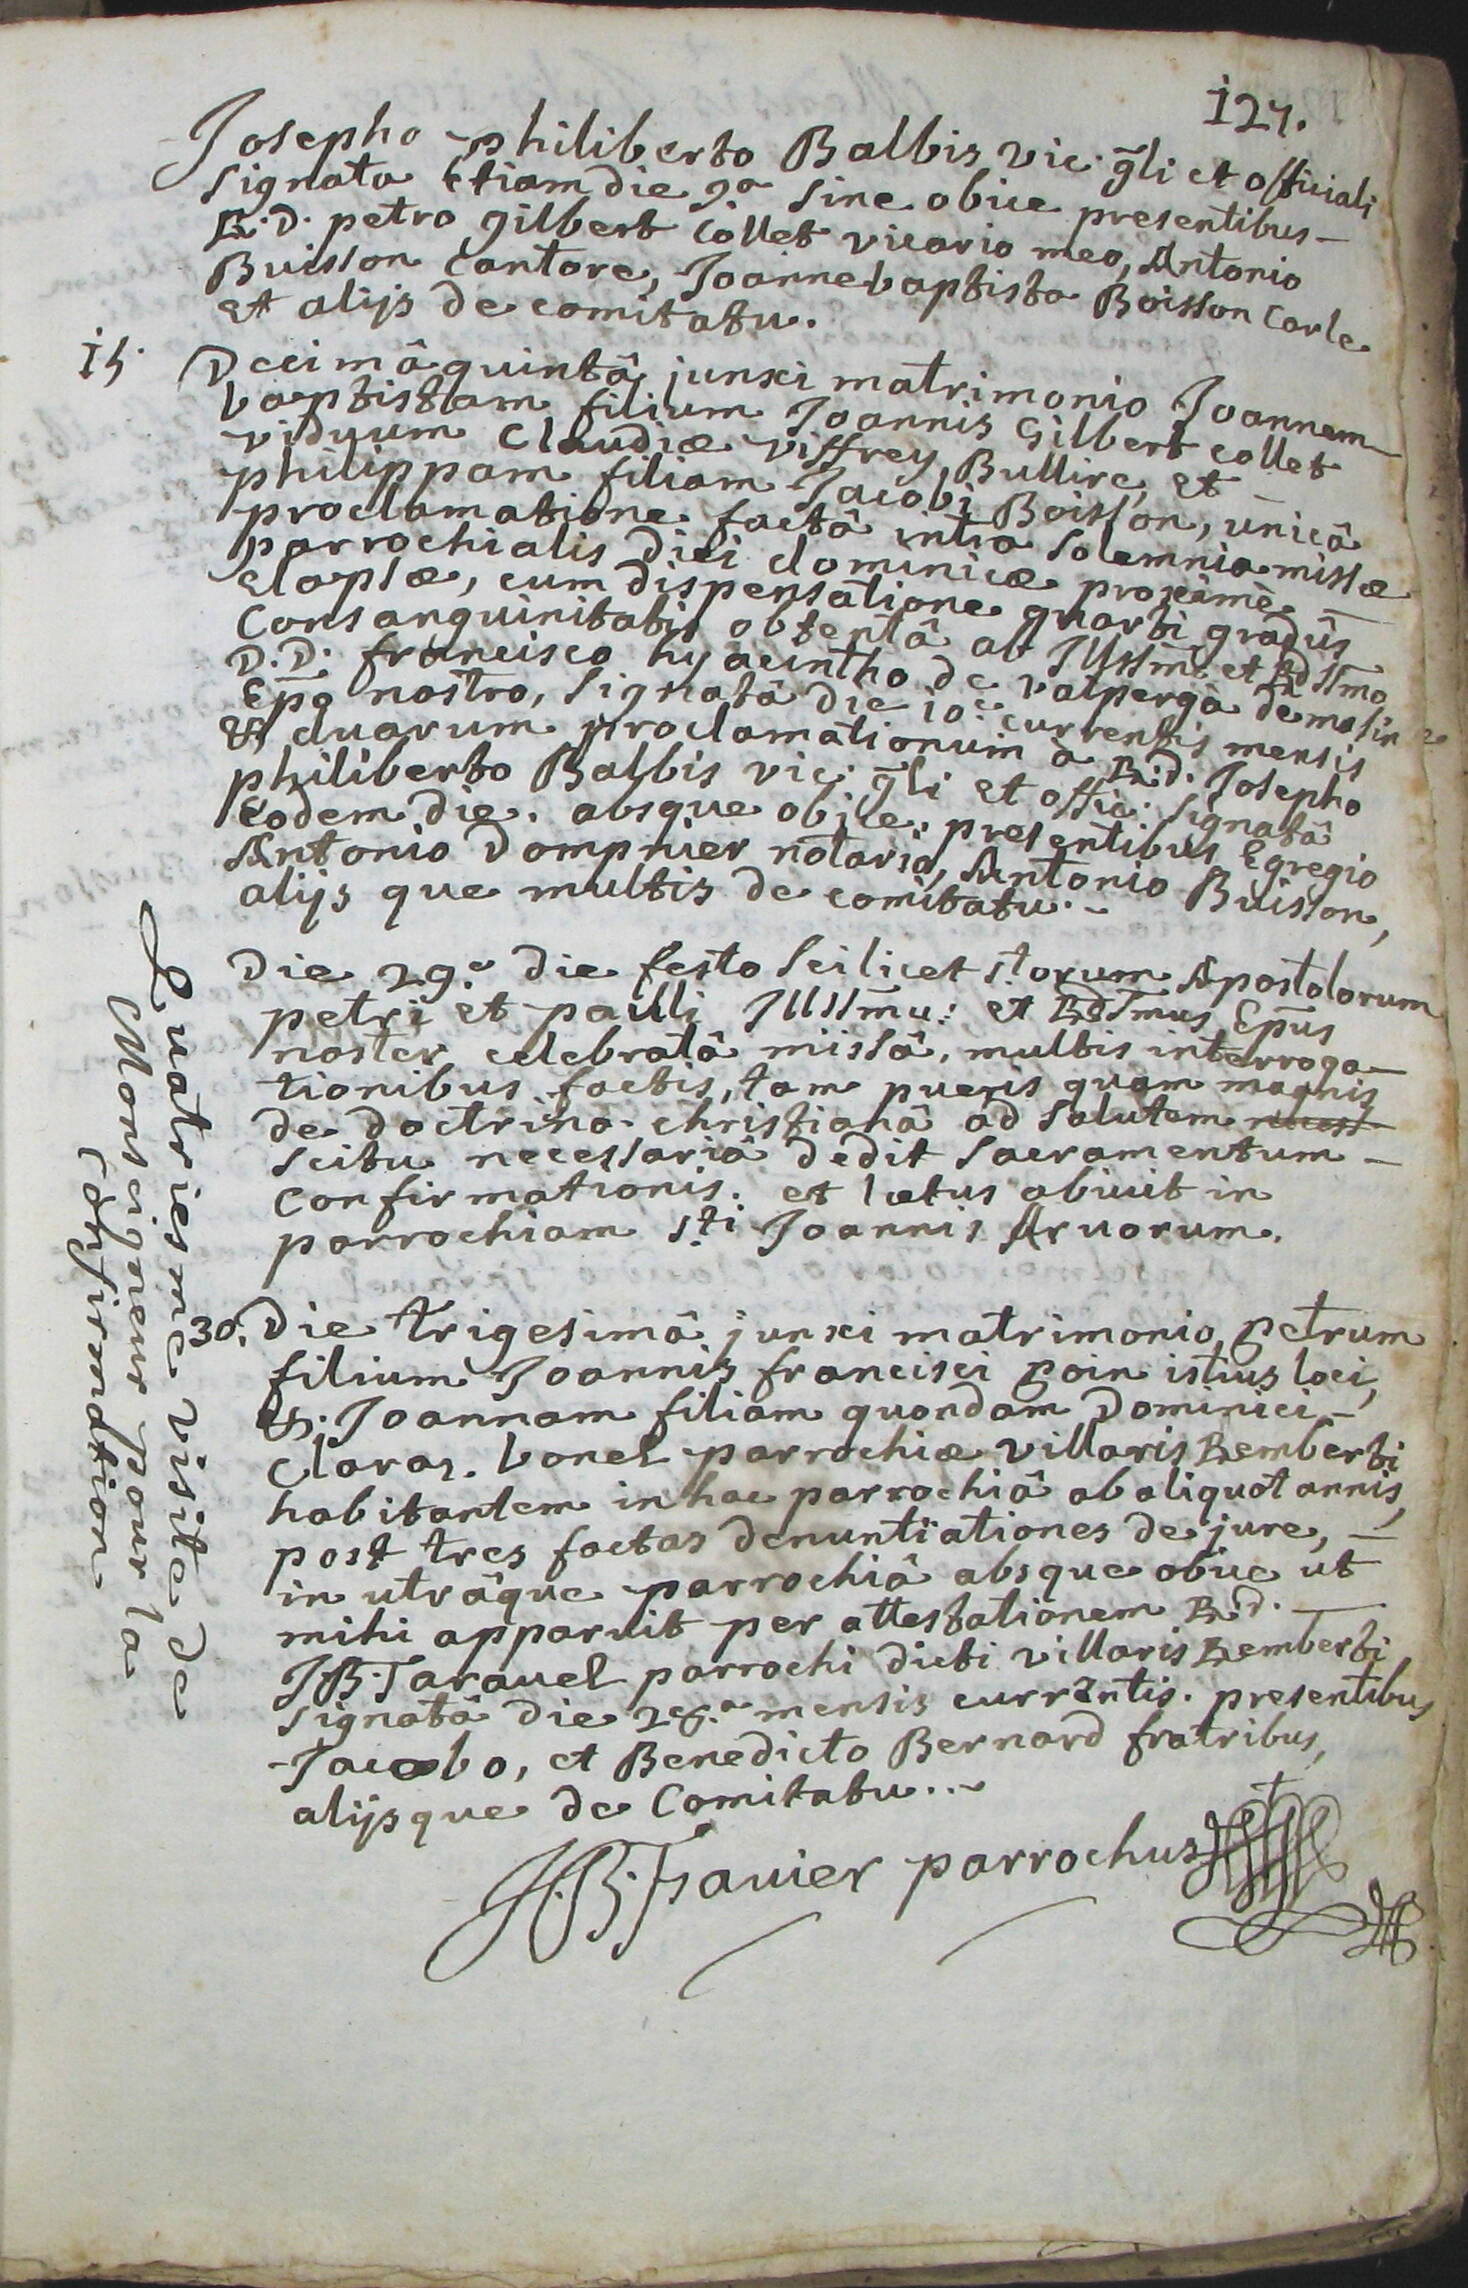 127.
Josepho philiberto Balbis vic. gli et officiali
signata etiam die 9a sine obice presentibus –
R.D. petro gilbert Collet vicario meo, Antonio
Buisson Cantore, Joanne baptista Boisson Carle
et alijs de comitatu.
15. Decimâ quintâ junxi matrimonio Joannem
baptistam filium Joannis Gilbert collet
viduum Claudiæ viffrey, Bullire, et
philippam filiam Jacobi Boisson, unicâ
proclamatione factâ intra solemnia missæ
parrochialis diei dominicæ proximè –
elapsæ, cum dispensatione quarti gradûs
Consanguinitatis obtentâ ab Illstmo et Rdssmo
D.D. francisco hyacintho de valperga de masin
Epo nostro, signatâ die 10e currentis mensis
& duarum proclamationum a R.d. Josepho
philiberto Balbis vic. gli et offic. signatâ
eodem die. absque obice. presentibus Egregio
Antonio Dompnier notario, Antonio Buisson,
alijs que multis de comitatu. –
Die 29a die festo scilicet storum Apostolorum
petri et paulli Illssmus et Rdssmus Epus
noster, celebratâ missâ, multis interroga–
tionibus factis, tam pueris quam magnis
de doctrina christianâ ad salutem necess
scitu necessariâ dedit sacramentum –
confirmationis. et lætus abiuit in
parrochiam sti Joannis Aruorum.
Quatriesme visite de
Monseigneur pour la
Confirmation
30. Die trigesimâ junxi matrimonio, petrum
filium Joannis francisci Coin istius loci,
&. Joannam filiam quondam Dominici –
claraz. bonel parrochiæ villaris Remberti
habitantem in hac parrochiâ ab aliquot annis,
post tres factas denuntiationes de jure, –
in utrâque parrochiâ absque obice ut
mihi apparuit per attestationem R.d. –
J.B. Tarauel parrochi dicti villaris Remberti
signatâ die 28.a mensis currentis. presentibus
Jacobo, et Benedicto Bernard fratribus,
alijsque de Comitatu...
J.B. Frauier parrochus